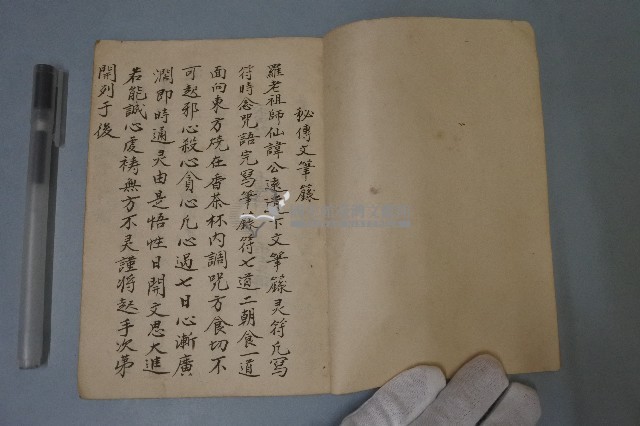 秘傳文筆籙
羅老祖師仙諱公遠濟下文筆籙灵符凢寫
符時念咒語完寫筆籙符七道二朝食一道
面向東方燒在香茶杯内調咒方食切不
可起邪心殺心貪心凢心過七日心漸廣
濶即時通灵由是悟性日開文思大進
若能誠心虔禱無方不灵謹將起手次第
開列于後